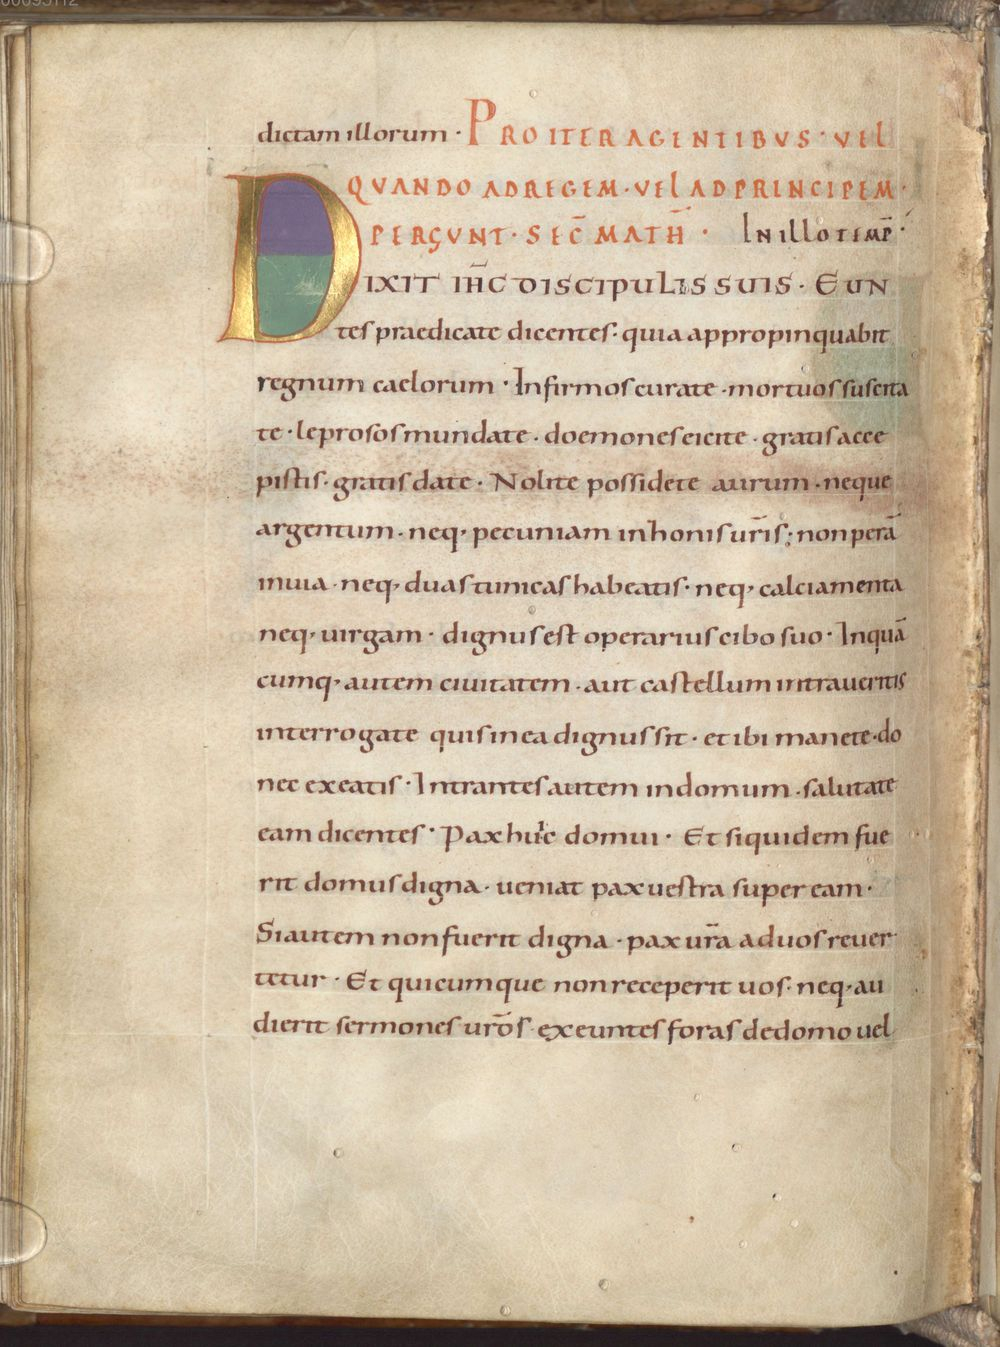 dictam illorum · PRO ITER AGENTIBVS · VEL
QVANDO AD REGEM · VEL AD PRINCIPEM ·
PERGVNT · SEC̄ MATH̄ · IN ILLO TEMP̄ ·
DIXIT IH̄C DISCIPULIS SUIS · EUN
tes praedicate dicentes · quia appropinquabit
regnum caelorum · Infirmos curate · mortuos suscita
te · leprosos mundate · doemones eicite · gratis acce
pistis · gratis date · Nolite possidete aurum · neque
argentum · neq, pecuniam in honis ur̄is ; non perā
in uia · neq, duas tunicas habeatis · neq, calciamenta
neq, uirgam · dignus est operarius cibo suo · In quā
cumq, autem ciuitatem · aut castellum intraueritis
interrogate quis in ea dignus sit · et ibi manete · do
nec exeatis · Intrantes autem in domum · salutate
eam dicentes · Pax huic domui · Et siquidem fue
rit domus digna · ueniat pax uestra super eam ·
Si autem non fuerit digna · pax ur̄a ad uos reuer
tetur · Et quicumque non receperit uos · neq, au
dierit sermones ur̄os · exeuntes foras de domo uel